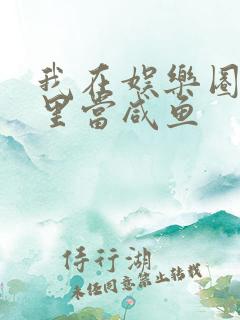 我在娱樂圈
里當咸鱼
侍行湖
未经同意禁止转载